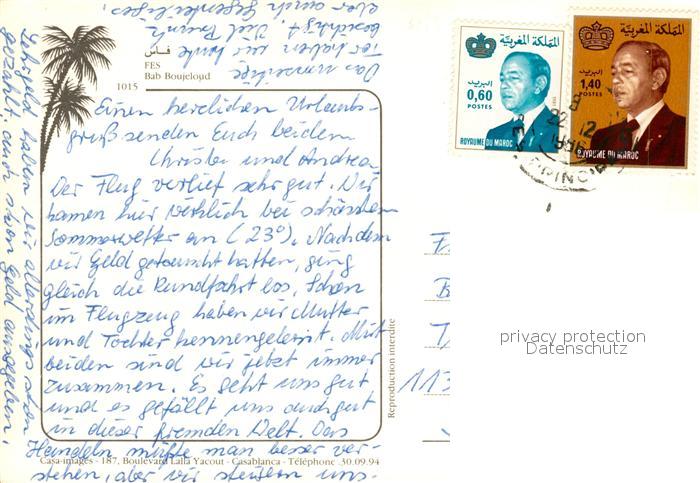 فاس
FES
Bab Boujeloud
1015
Einen herzlichen Urlaubs-
gruß senden Euch beiden
Christa und Andrea
Der Flug verlief sehr gut. Wir
kamen hier wirklich bei schönstem
Sommerwetter an (23°). Nachdem
wir Geld getauscht hatten, ging
gleich die Rundfahrt los. Schon
im Flugzeug haben wir Mutter
und Tochter kennengelernt. Mit
beiden sind wir jetzt immer
zusammen. Es geht uns gut
und es gefällt uns auch gut
in dieser fremden Welt. Das
Handeln müßte man besser ver-
stehen, aber wir steigern uns.
Lehrgeld haben wir allerdings schon
gezahlt, auch schon Geld ausgegeben.
Das marokkanische
haben wir heute
besichtigt. Viel
aber auch Gegenteiliges.
Casa-images - 187, Boulevard Lalla Yacout - Casablanca - Téléphone .30.09.94
Reproduction interdite
المملكة المغربية
البريد
0,60
POSTES
ROYAUME DU MAROC
المملكة المغربية
البريد
1,40
POSTES
ROYAUME DU MAROC
22 12
1986
FES PRINCIPAL
113
privacy protection
Datenschutz